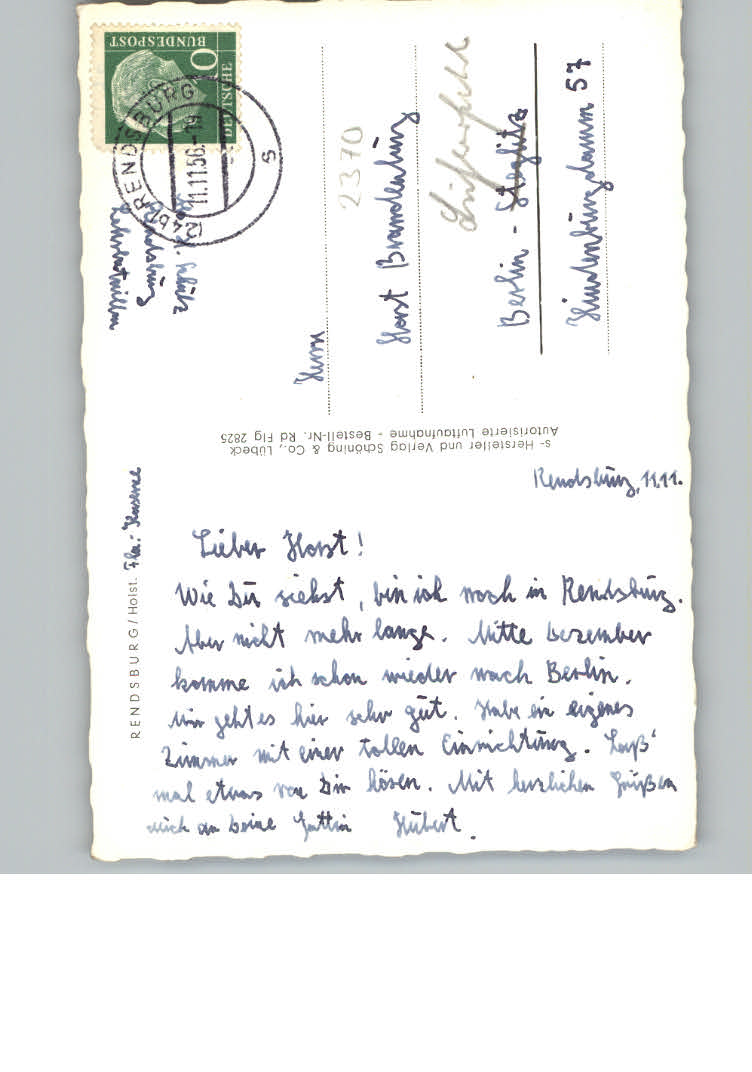 Rendsburg, 11.11.
Lieber Horst!
Wie Du siehst, bin ich noch in Rendsburg.
Aber nicht mehr lange. Mitte Dezember
komme ich schon wieder nach Berlin.
Mir geht es hier sehr gut. Habe ein eigenes
Zimmer mit einer tollen Einrichtung. Laß'
mal etwas von Dir hören. Mit herzlichen Grüßen
auch an Deine Gattin Hubert.
RENDSBURG/Holst. Fla.-Kaserne
s- Hersteller und Verlag Schöning & Co., Lübeck
Autorisierte Luftaufnahme - Bestell-Nr. Rd Flg 2825
DEUTSCHE
BUNDESPOST
(24b) RENDSBURG
11.11.56.-19
s
Schütz
Rendsburg
Herrn
2370
Horst Brandenburg
Berlin - Steglitz
Hindenburgdamm 57